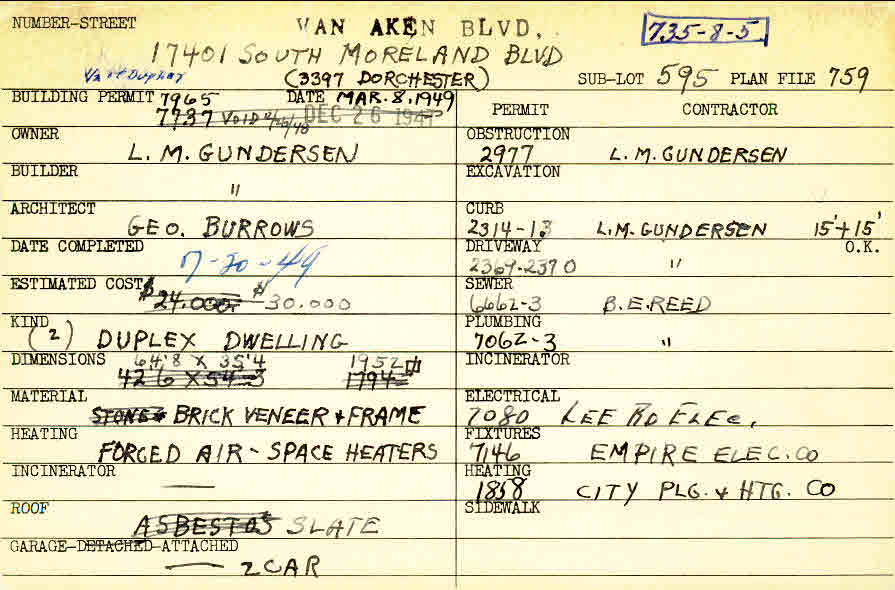 NUMBER-STREET VAN AKEN BLVD, 735-8-5
17401 SOUTH MORELAND BLVD
(3397 DORCHESTER) SUB-LOT 595 PLAN FILE 759
BUILDING PERMIT 7965 DATE MAR. 8, 1949 PERMIT CONTRACTOR
7737 VOID DEC 26 194
OWNER OBSTRUCTION
L. M. GUNDERSEN 2977 L. M. GUNDERSEN
BUILDER EXCAVATION
"
ARCHITECT CURB
GEO. BURROWS 2314-13 L.M. GUNDERSEN 15'+15'
DATE COMPLETED DRIVEWAY O.K.
7-20-49 2369-2370 "
ESTIMATED COST SEWER
$24.000. $30.000 6662-3 B.E. REED
KIND PLUMBING
(2) DUPLEX DWELLING 7062-3 "
DIMENSIONS 64'8 X 35'4 1952 INCINERATOR
42 6 X 54-3 1794
MATERIAL ELECTRICAL
STONE & BRICK VENEER & FRAME 7080 LEE RD ELEC.
HEATING FIXTURES
FORCED AIR - SPACE HEATERS 7146 EMPIRE ELEC. CO
INCINERATOR HEATING
— 1858 CITY PLG. & HTG. CO
ROOF SIDEWALK
ASBESTOS SLATE
GARAGE-DETACHED-ATTACHED
— 2 CAR